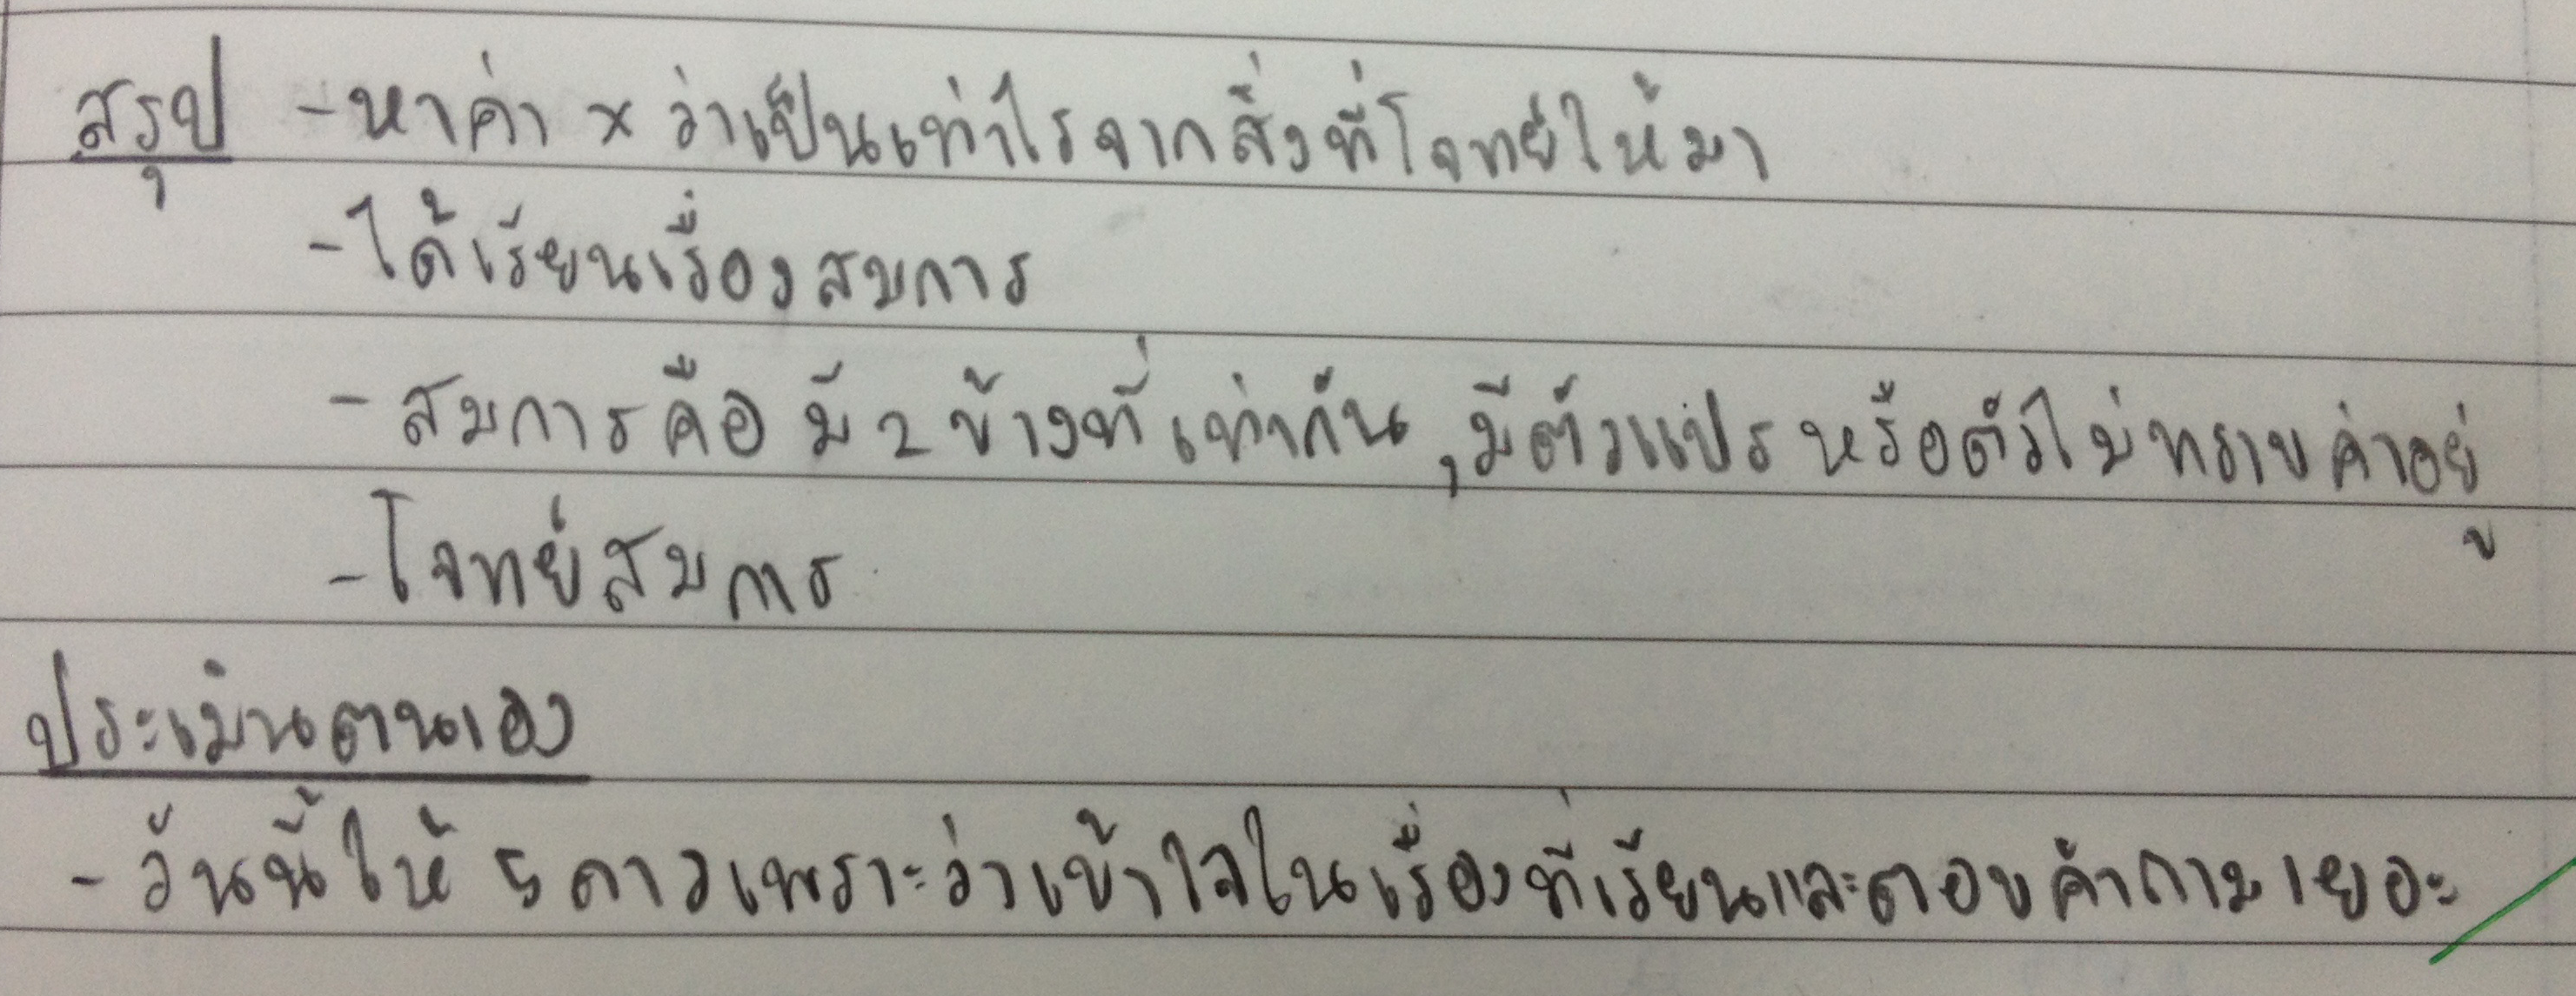 สรุป - หาค่า x ว่าเป็นเท่าไรจากสิ่งที่โจทย์ให้มา
- ได้เรียนเรื่องสมการ
- สมการคือ มี 2 ข้างที่เท่ากัน , มีตัวแปร หรือตัวไม่ทราบค่าอยู่
- โจทย์สมการ
ประเมินตนเอง
- วันนี้ให้ 5 ดาวเพราะว่าเข้าใจในเรื่องที่เรียนและตอบคำถามเยอะ